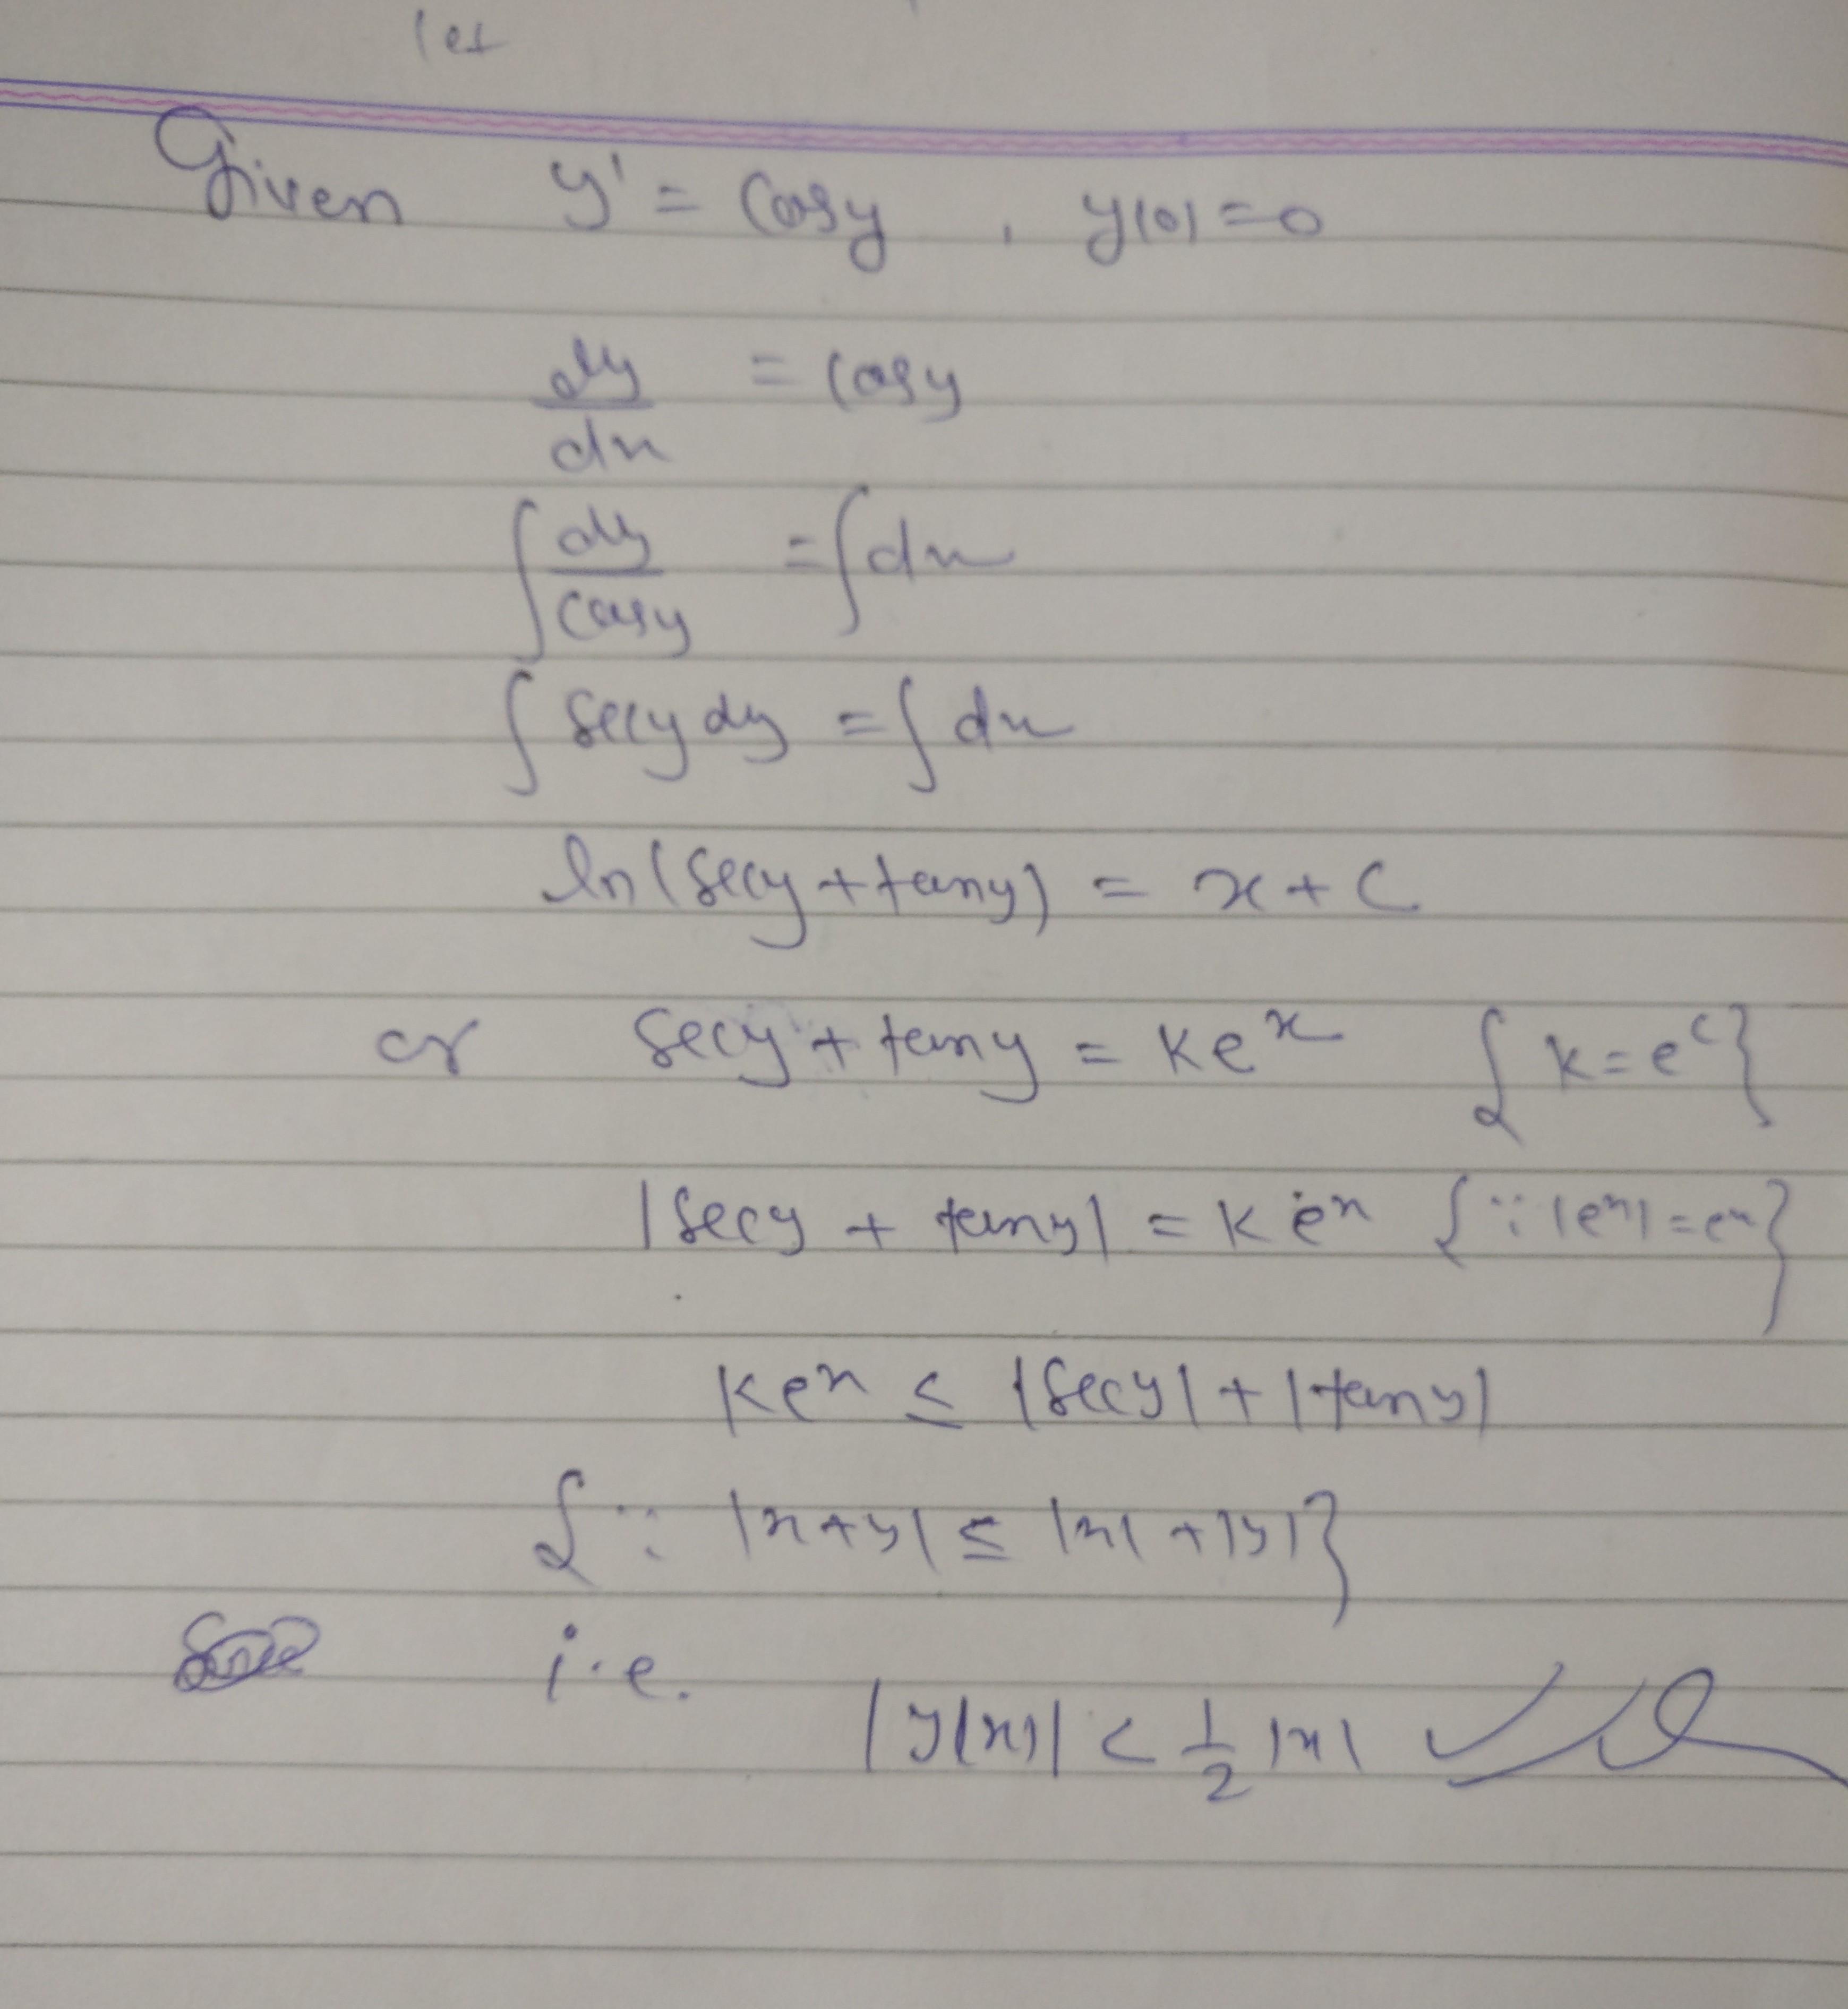 let
Given y' = cosy , y(0)=0
dy/dx = cosy
∫ dy/cosy = ∫dx
∫ secy dy = ∫ dx
ln(secy + tany) = x + c
or secy + tany = ke^x {k = e^c}
|secy + tany| = k e^x {∵ |e^x| = e^x}
ke^x ≤ |secy| + |tany|
{∵ |x+y| ≤ |x| + |y|}
i.e.
|y(x)| < 1/2 |x|